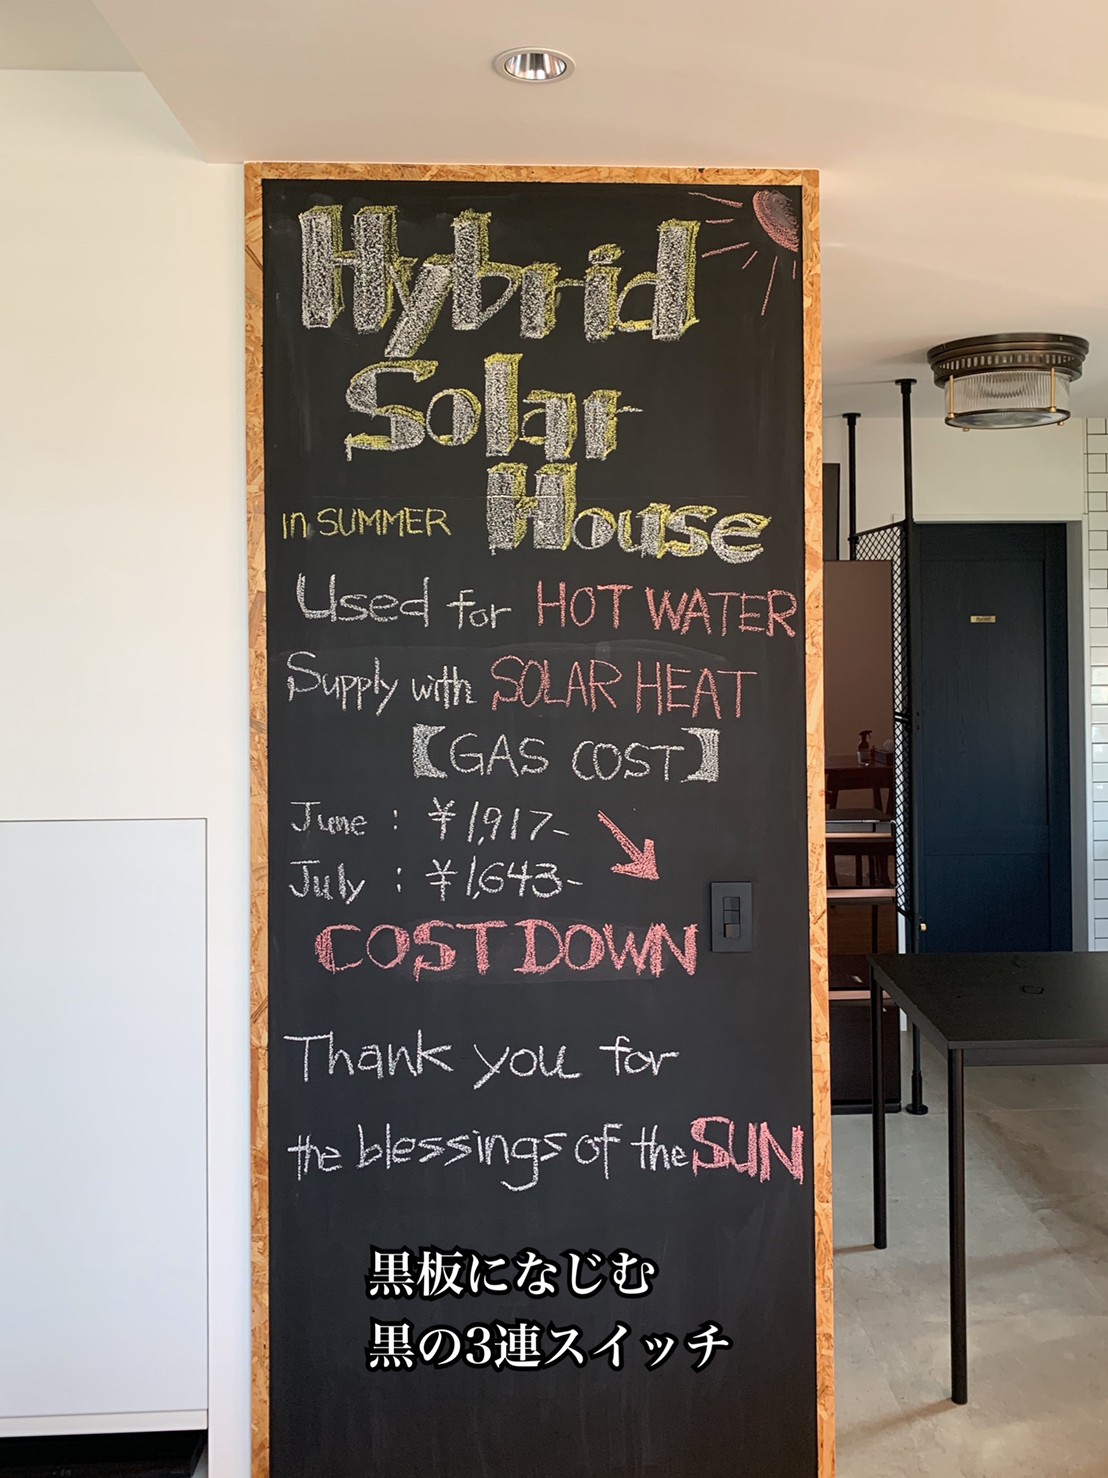 Hybrid
Solar
House
in SUMMER
Used for HOT WATER
Supply with SOLAR HEAT
【GAS COST】
June : ¥1,917-
July : ¥1,643-
COST DOWN
Thank you for
the blessings of the SUN
黒板になじむ
黒の3連スイッチ